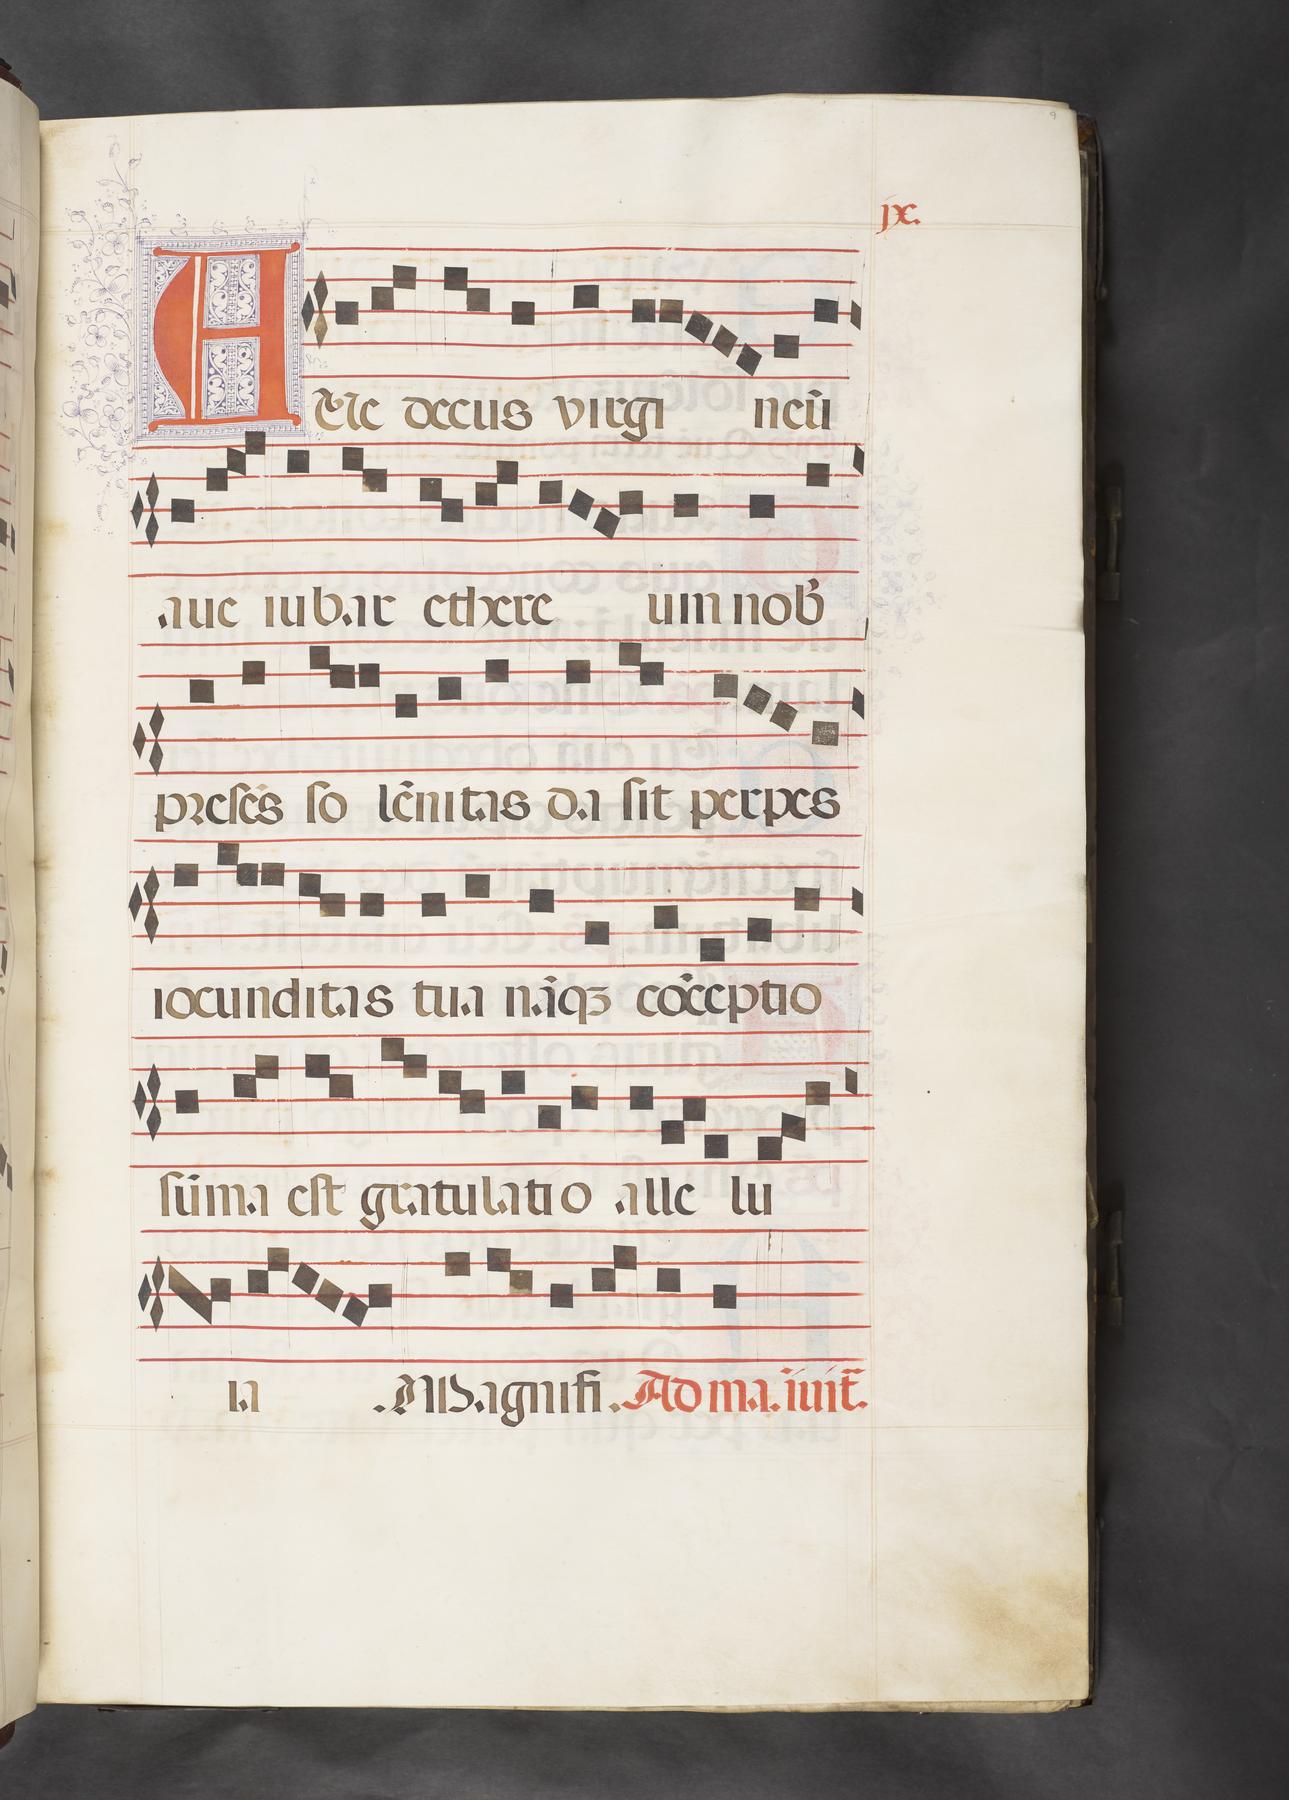 9
jx.
AVe decus virgi neū
aue iubar ethere um nob̄
presēs so lēnitas da sit perpes
iocunditas tua nāqȝ cōceptio
sūma est gratulatio alle lu
ia .Magnifi. Ad ma. iuit̄.